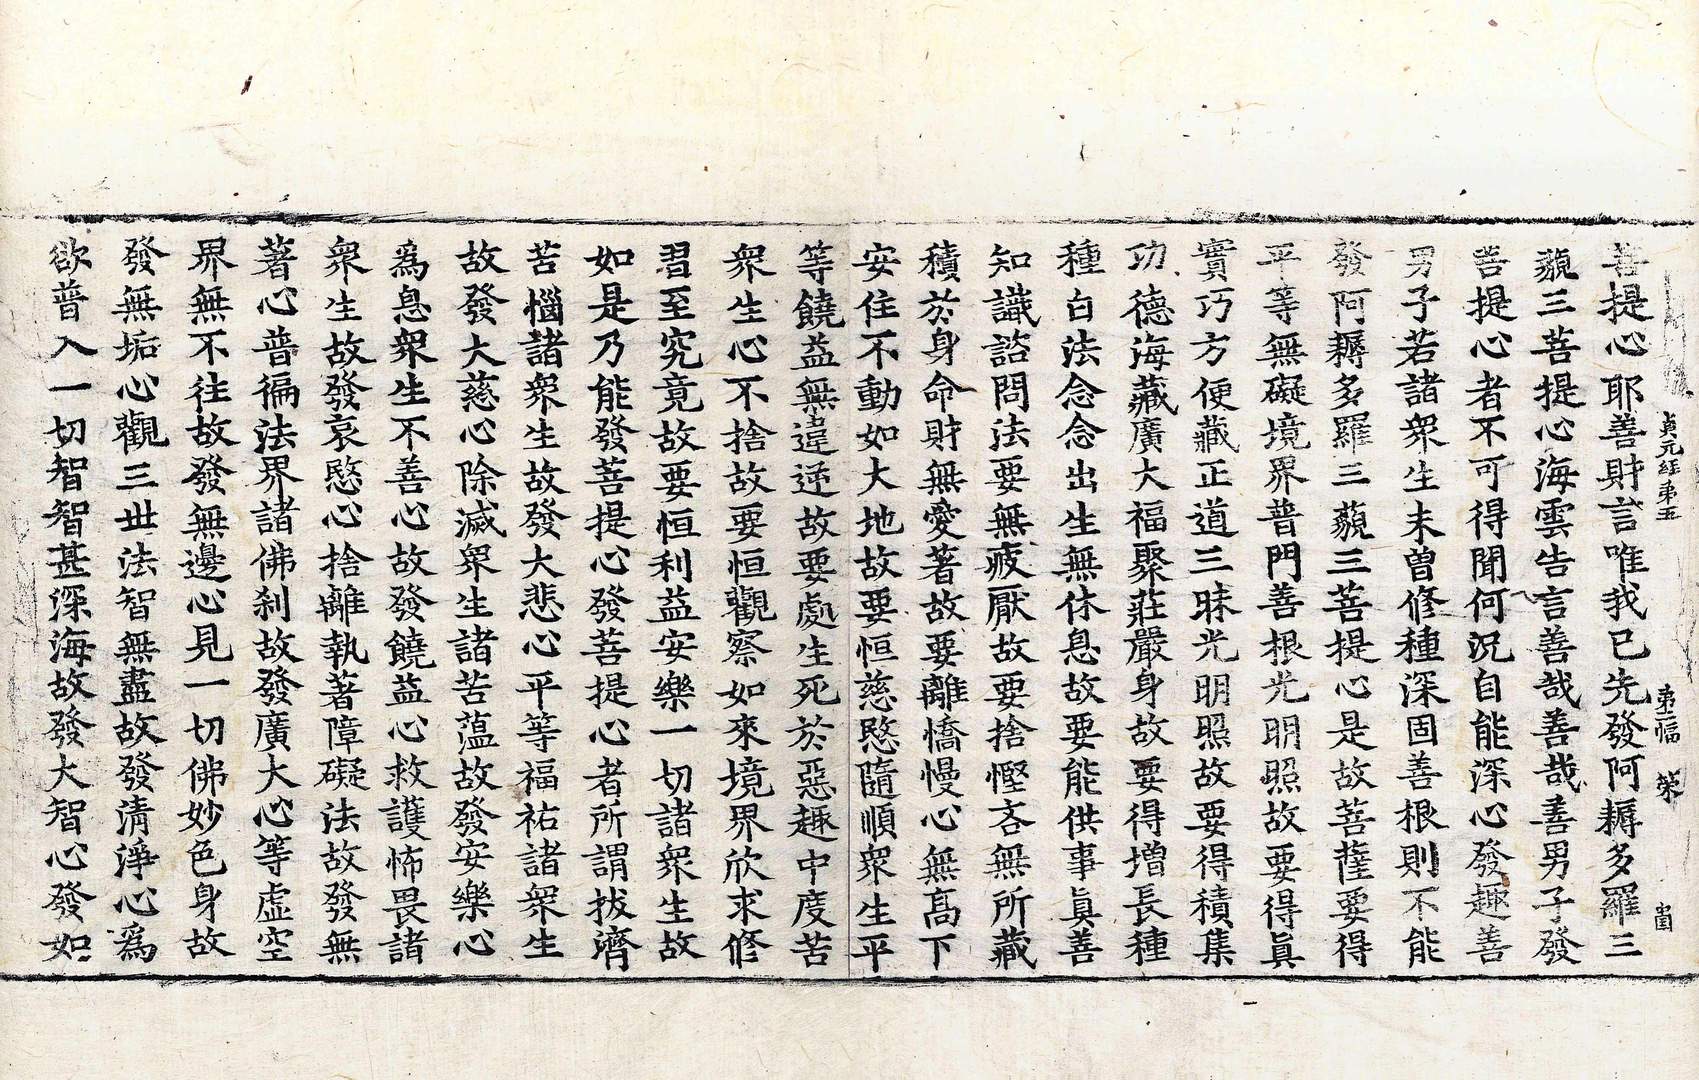 貞元經第五 第二幅 榮 岀
菩提心耶善財言唯我已先發阿耨多羅三
藐三菩提心海雲告言善哉善哉善男子發
菩提心者不可得聞何況自能深心發趣善
男子若諸衆生未曽修種深固善根則不能
發阿耨多羅三藐三菩提心是故菩薩要得
平等無礙境界普門善根光明照故要得真
實巧方便藏正道三昧光明照故要得積集
功德海藏廣大福聚莊嚴身故要得增長種
種白法念念出生無休息故要能供事真善
知識諮問法要無疲厭故要捨慳吝無所藏
積於身命財無愛著故要離憍慢心無高下
安住不動如大地故要恒慈愍隨順衆生平
等饒益無違逆故要處生死於惡趣中度苦
衆生心不捨故要恒觀察如來境界欣求修
習至究竟故要恒利益安樂一切諸衆生故
如是乃能發菩提心發菩提心者所謂拔濟
苦惱諸衆生故發大悲心平等福祐諸衆生
故發大慈心除滅衆生諸苦蘊故發安樂心
爲息衆生不善心故發饒益心救護怖畏諸
衆生故發哀愍心捨離執著障礙法故發無
著心普徧法界諸佛刹故發廣大心等虛空
界無不往故發無邊心見一切佛妙色身故
發無垢心觀三世法智無盡故發清淨心爲
欲普入一切智智甚深海故發大智心發如